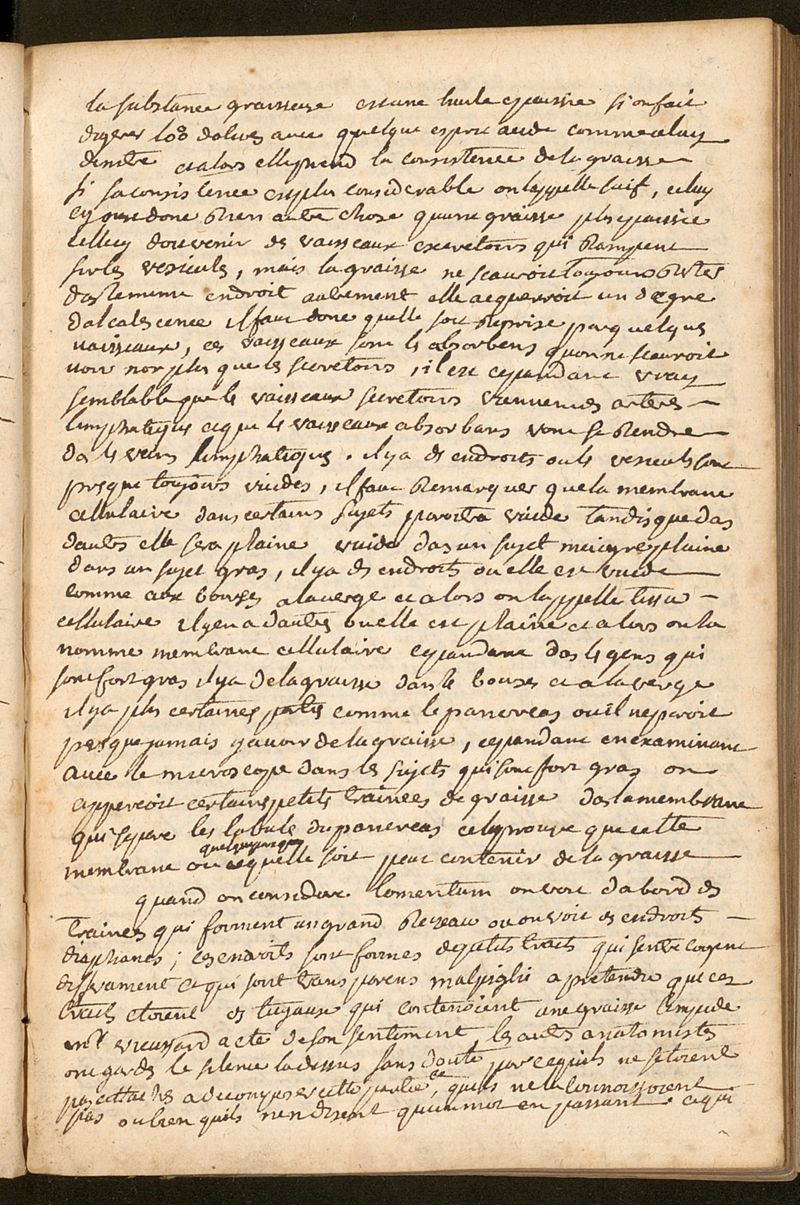 la substance graisseuse est une huile epaissie si on fait
digerer l'huile d'olives avec quelque esprit acide comme celuy
de nitre et alors elle prend la consistence de la graisse
si sa consistence est plus considerable on l'appelle suif, celuy
cy n'est donc rien autre chose qu'une graisse plus epaissie
celluy doit venir des vaisseaux excretoirs qui rampent
sur les vesicules, mais la graisse ne scauroit toujours rester
dans le meme endroit autrement elle acquerroit un degré
d'alcalescence il faut donc quelle soit reprise par quelques
vaisseaux, ces vaisseaux sont les absorbens qu'on ne scauroit
voir non plus que les secretoirs, il est cependant vray
semblable que les vaisseaux secretoirs viennent des arteres
limphatiques et que les vaisseaux absorbans vont se rendre
da les veines limphatiques. il y a des endroits ou les vesicules sont
presque toujours vuides, il faut remarquer que la membrane
cellulaire dans certains sujets paroitra vuide tandis que das
dautres elle sera plaine vuide das un sujet maigre plaine
dans un sujet gras, il y a des endroits ou elle est vuide
comme aux bourses a la verge et alors on l'appelle tissu
cellulaire il y en a dautres ou elle est plaine et alors on la
nomme membrane cellulaire cependant das les gens qui
sont fort gras il y a de la graisse dans le bourses et a la verge
il y a plus certaines parties comme le pancreas ou il ne paroit
presque jamais y avoir de la graisse, cependant en examinant
avec le microscope dans les sujets qui sont fort gras on
apperçoit certaines petites trainées de graisse das la membrane
qui separe les lobules du pancreas cela prouve que cette
membrane quelque part ou quelle soit peut contenir de la graisse
quand on considere lomentum on voit dabord des
trainees qui forment un grand reseau ou on voit des endroits
diaphanes; ces endroits sont formes de petits traits qui sentre coupent
diversement et qui sont transparens malpighi a pretendu que ces
traits etoient des tuyaux qui contenoient une graisse limpide
mr vieussens a ete de son sentiment les autres anatomistes
ont gardé le silence la dessus sans doute parcequils ne setoient
pas attachés a decomposer cette partie, quils ne la connoissoient
pas ou bien quils n'en disent qu'un mot en passant. ce qui